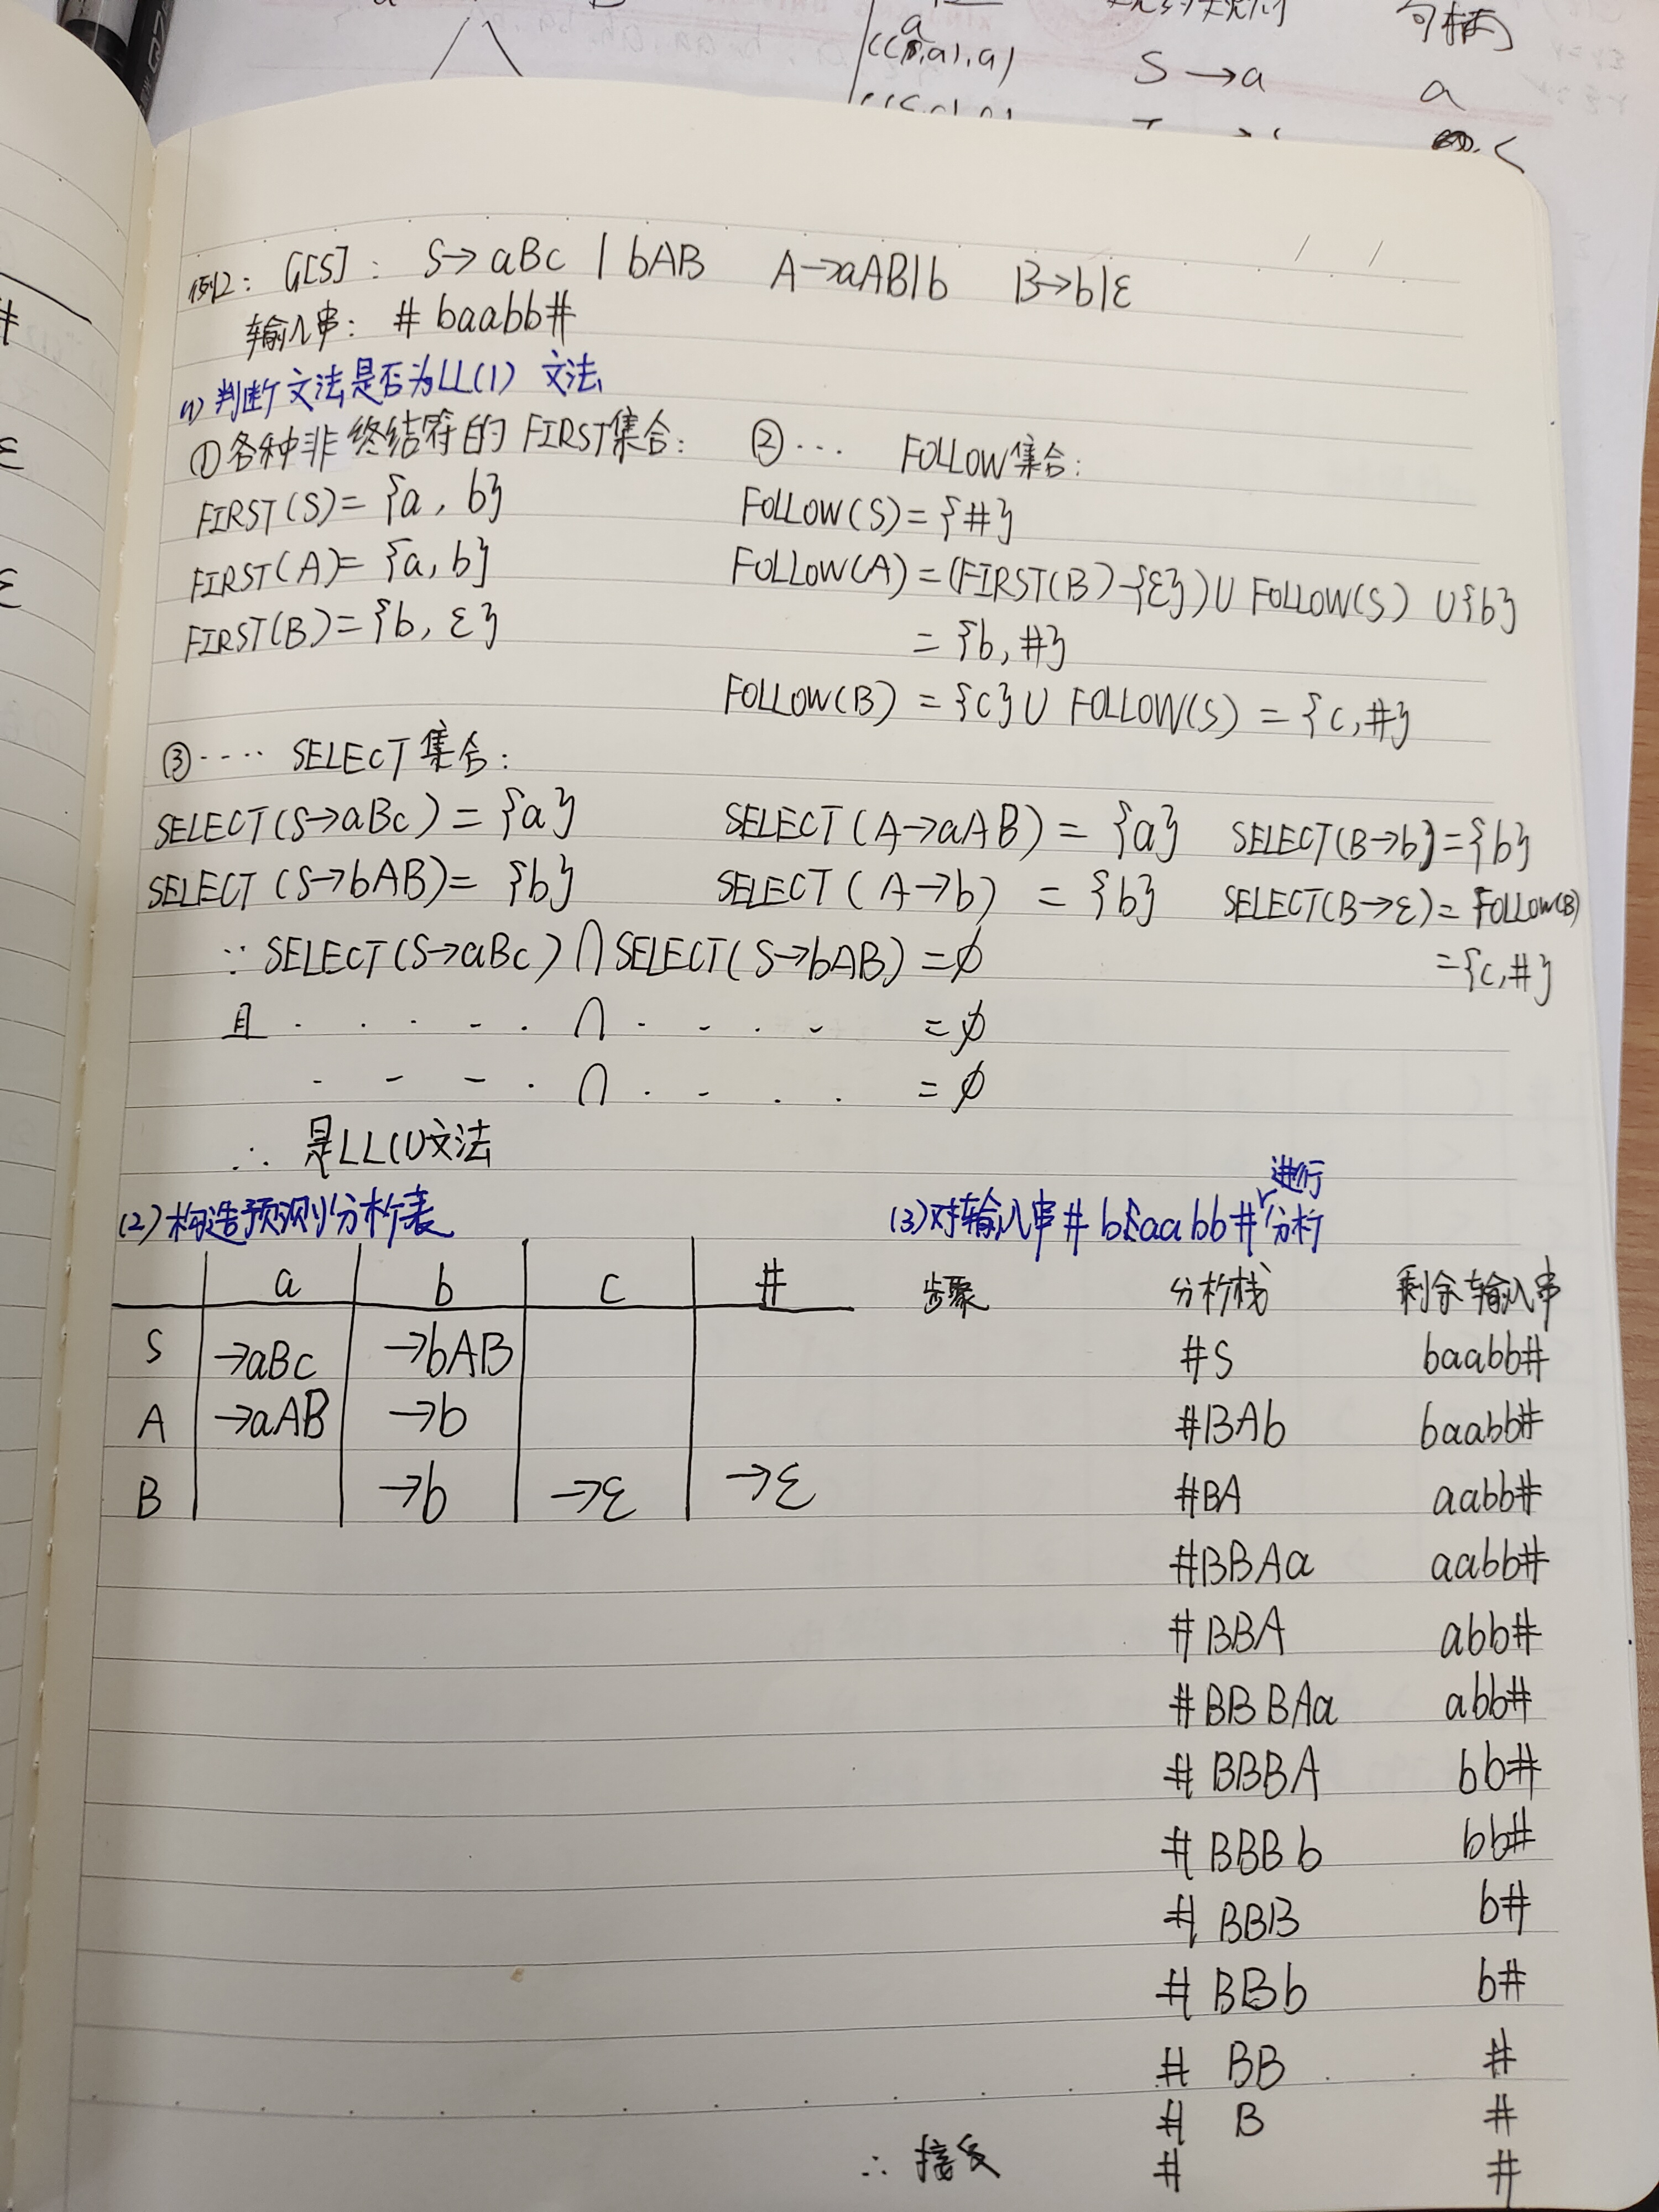 ((a,a),a)
S→a
a
句柄
例2: G[S]: S→aBc | bAB A→aAB|b B→b|ε
输入串: #baabb#
(1)判断文法是否为LL(1)文法
①各种非终结符的FIRST集合: ②… FOLLOW集合:
FIRST(S)={a, b} FOLLOW(S)={#}
FIRST(A)={a, b} FOLLOW(A)=(FIRST(B)-{ε})∪FOLLOW(S)∪{b}
FIRST(B)={b, ε} ={b, #}
FOLLOW(B)={c}∪FOLLOW(S)={c, #}
③…. SELECT集合:
SELECT(S→aBc)={a} SELECT(A→aAB)={a} SELECT(B→b)={b}
SELECT(S→bAB)={b} SELECT(A→b)={b} SELECT(B→ε)=FOLLOW(B)
∵SELECT(S→aBc)∩SELECT(S→bAB)=∅ ={c,#}
且.....∩....=∅
....∩....=∅
∴ 是LL(1)文法
(2)构造预测分析表
a b c #
S →aBc →bAB
A →aAB →b
B →b →ε →ε
(3)对输入串#baabb#进行分析
步骤 分析栈 剩余输入串
#S baabb#
#BAb baabb#
#BA aabb#
#BBAa aabb#
#BBA abb#
#BBBAa abb#
#BBBA bb#
#BBBb bb#
#BBB b#
#BBb b#
#BB #
#B #
∴接受 # #